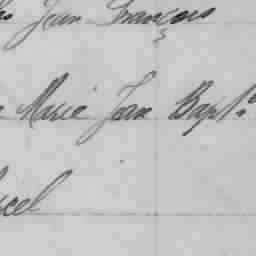 Jean François
Marie Jean Bapt.e